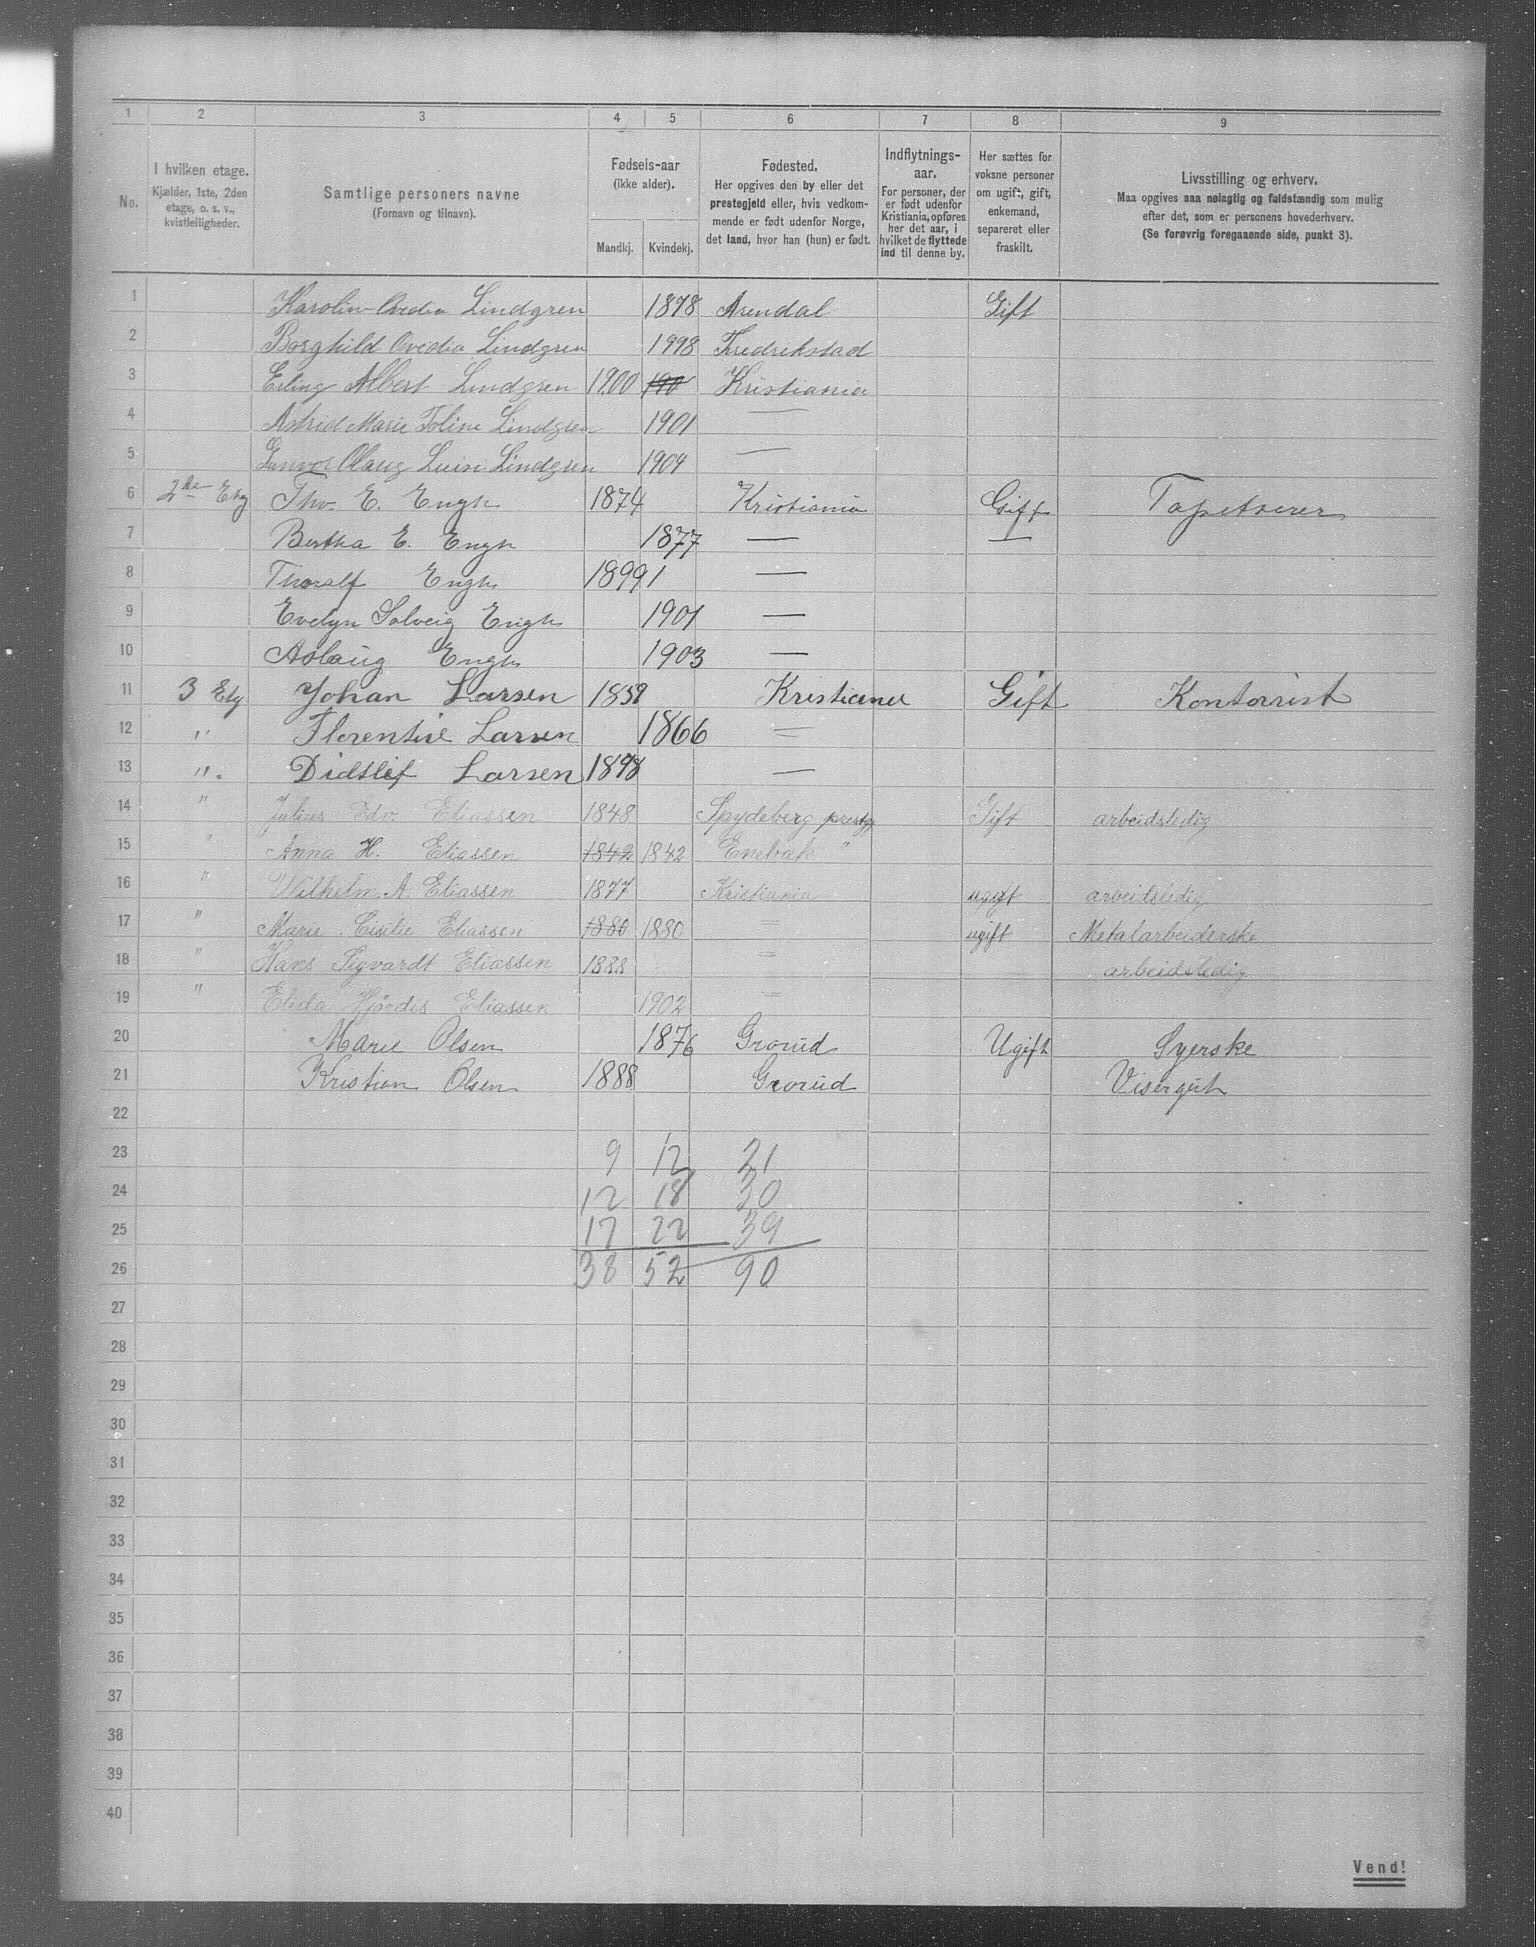 1 2 3 4 5 6 7 8 9
No.
I hvilken etage.
Kjælder, 1ste, 2den
etage, o. s. v.,
kvistleiligheder.
Samtlige personers navne
(Fornavn og tilnavn).
Fødsels-aar
(ikke alder).
Mandkj. Kvindekj.
Fødested.
Her opgives den by eller det
prestegjeld eller, hvis vedkom-
mende er født udenfor Norge,
det land, hvor han (hun) er født.
Indflytnings-
aar.
For personer, der
er født udenfor
Kristiania, opføres
her det aar, i
hvilket de flyttede
ind til denne by.
Her sættes for
voksne personer
om ugift, gift,
enkemand,
separeret eller
fraskilt.
Livsstilling og erhverv.
Maa opgives saa nøiagtig og fuldstændig som mulig
efter det, som er personens hovederhverv.
(Se forøvrig foregaaende side, punkt 3).
1 Karolin Ovedia Lindgren 1878 Arendal Gift
2 Borghild Ovedia Lindgren 1998 Fredrikstad
3 Erling Albert Lindgren 1900 190 Kristiania
4 Astrid Marie Toline Lindgren 1901 —
5 Gunvor Olaug Luise Lindgren 1904 —
6 2den Etg Thv. E. Engh 1874 Kristiania Gift Tapetserer
7 Bertha E. Engh 1877 — —
8 Thoralf Engh 1899 1 —
9 Evelyn Solveig Engh 1901 —
10 Aslaug Engh 1903 —
11 3 Etg Johan Larsen 1858 Kristiania Gift Kontorrist
12 " Florentine Larsen 1866 =
13 ". Didtlef Larsen 1898 —
14 " Julius Edv. Eliassen 1848 Spydeberg prestgj Gift arbeidsledig
15 " Anna H. Eliassen 1842 1842 Enebak "
16 " Wilhelm. A. Eliassen 1877 Kristiania ugift arbeidsledig
17 " Marie Cisilie Eliassen 1880 1880 = ugift Metalarbeiderske
18 " Hans Sigvardt Eliassen 1888 = arbeidsledig
19 " Elida Hjördis Eliassen 1902 =
20 Marie Olsen 1876 Grorud Ugift Syerske
21 Kristian Olsen 1888 Grorud Visergut
22
23 9 12 21
24 12 18 30
25 17 22 39
26 38 52 90
27
28
29
30
31
32
33
34
35
36
37
38
39
40
Vend!